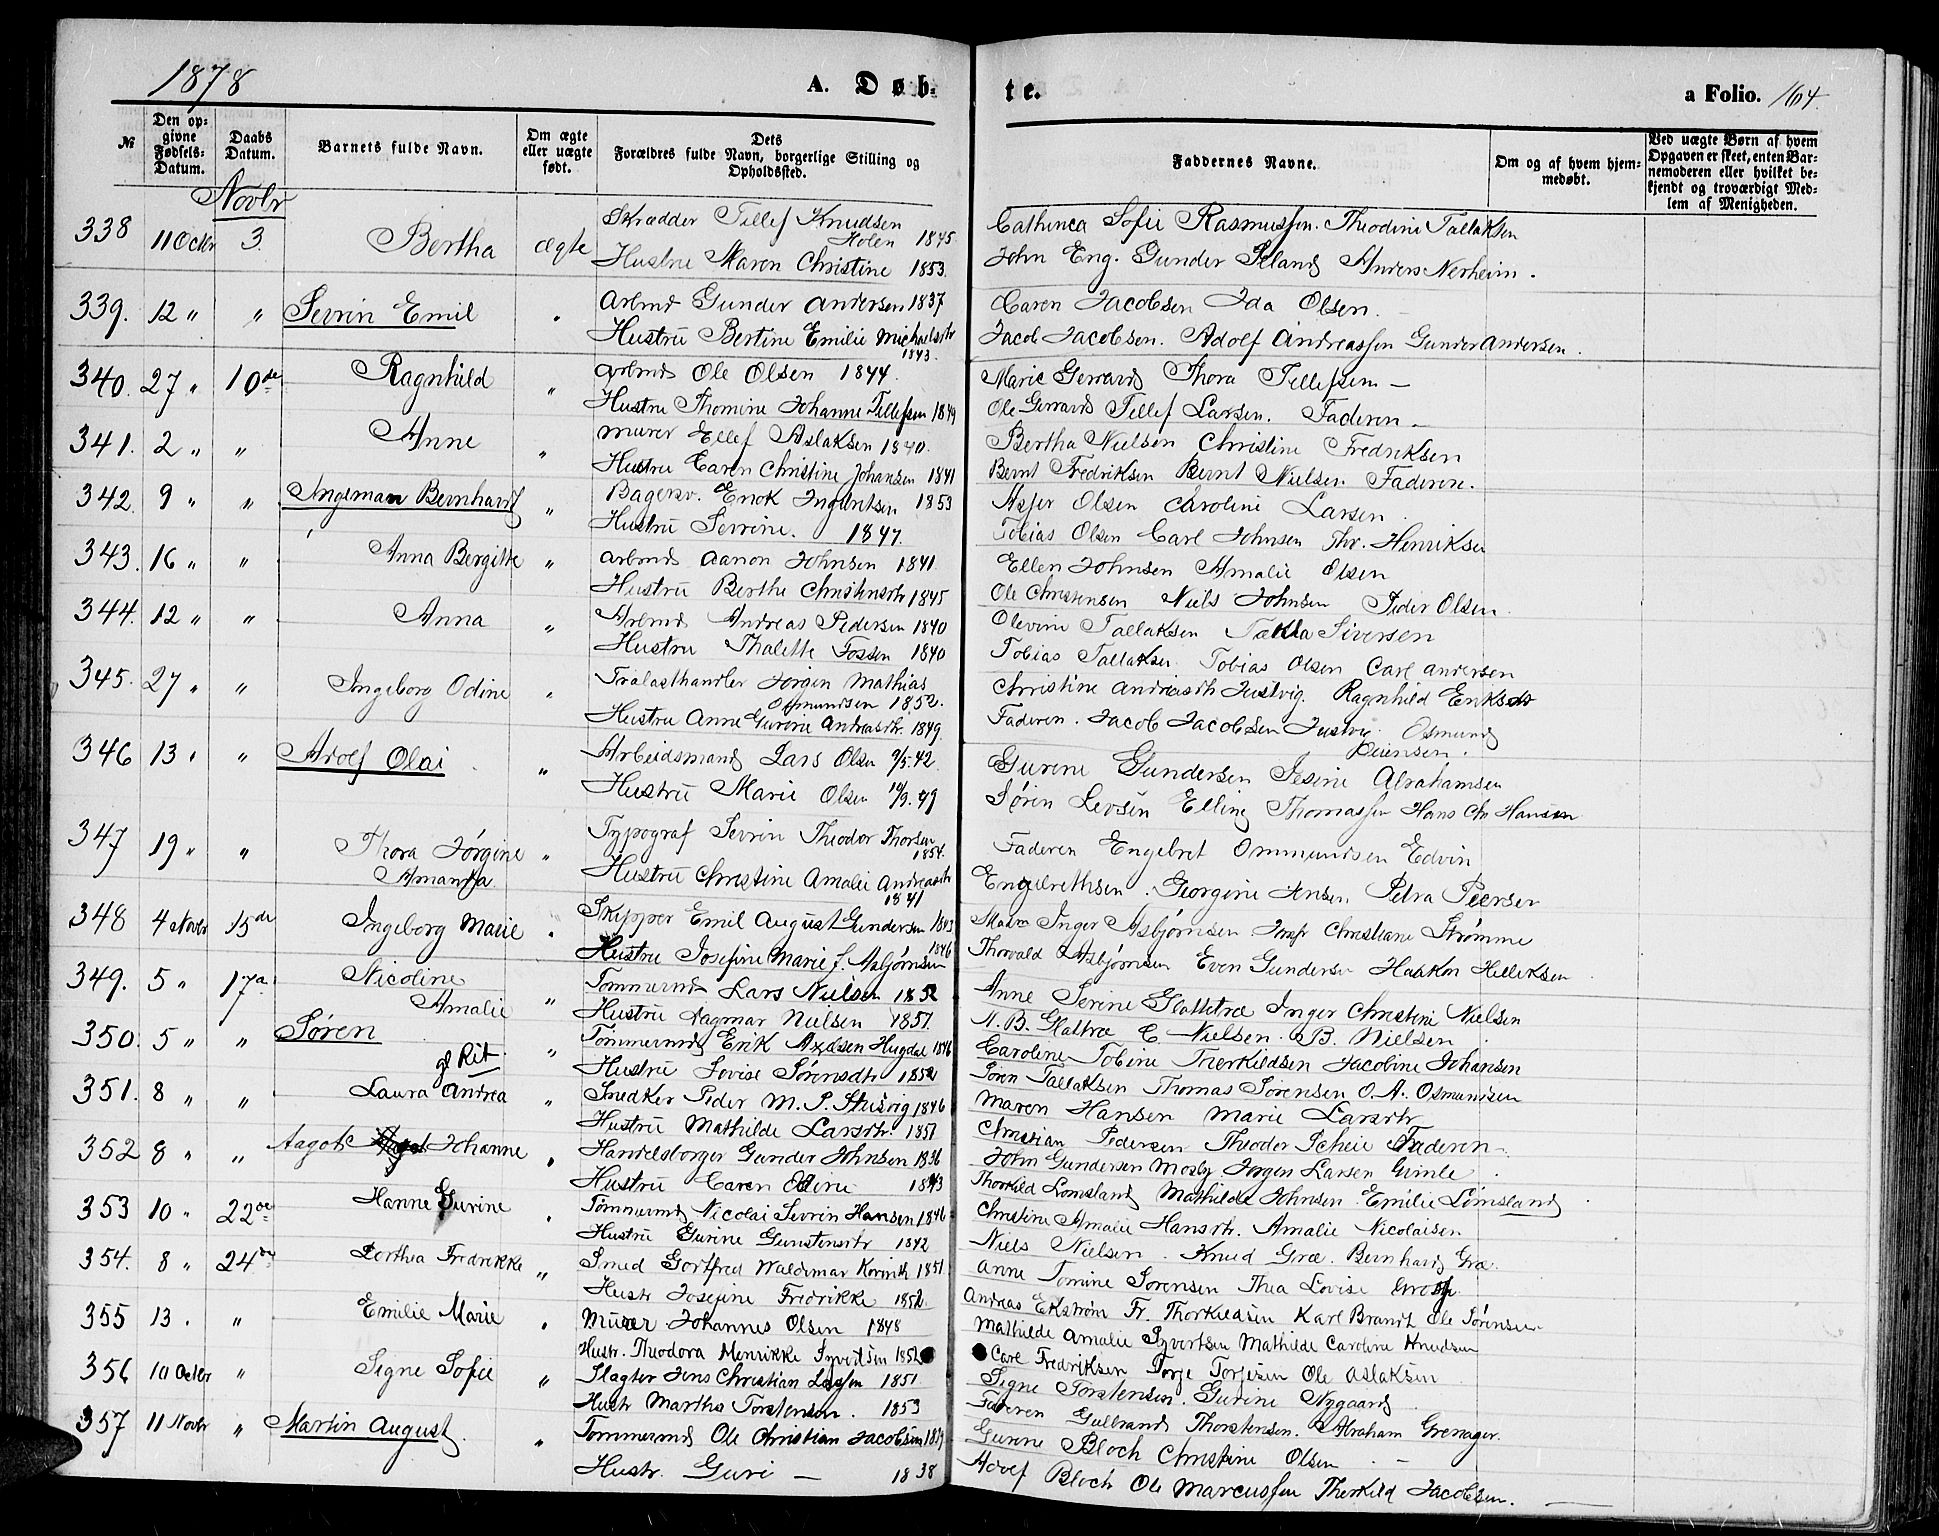 1878
A. Døb-
te.
a Folio. 164
№
Den opgivne Fødsels-Datum.
Daabs Datum.
Barnets fulde Navn.
Om ægte eller uægte født.
Dets Forældres fulde Navn, borgerlige Stilling og Opholdssted.
Faddernes Navne.
Om og af hvem hjemmedøbt.
Ved uægte Børn af hvem Opgaven er skeet, enten Barnemoderen eller hvilket bekjendt og troværdigt Medlem af Menigheden.
Novbr
338 11 Octbr 3 Bertha ægte Skrædder Tellef Knudsen Holen 1845
Hustru Maren Christine 1853.
Cathinca Sofie Rasmussen. Theodine Tallaksen
John Eng. Gunder Anders Nerheim.
339. 12 " " Sevrin Emil " Arbmd Gunder Andersen 1837
Hustru Bertine Emilie Michaelsdtr 1843.
Caren Jacobsen Ida Olsen.
Jacob Jacobsen. Adolf Andreassen Gunder Andersen.
340. 27 " 10de Ragnhild " Arbmd Ole Olsen 1844.
Hustru Thomine Johanne Tellefsen 1849
Marie Gerrard Thora Tellefsen —
Ole Gerrard Tellef Larsen. Faderen —
341. 2 " " Anne " Murer Ellef Aslaksen 1840.
Hustru Caren Christine Johansen 1841
Bertha Nielsen Christine Fredriksen
Bernt Fredriksen Bernt Nielsen Faderen.
342 9 " " Ingeman Bernhard " Bagersv. Enok Ingbritsen 1853
Hustru Serine. 1847.
Olsen Caroline Larsen
Tobias Olsen Carl Johnsen Henriksen
343. 16 " " Anna Bergitte " Arbmd Aanon Johnsen 1841
Hustru Berthe Christensdtr 1845
Ellen Johnsen Amalie Olsen
Ole Christensen Niels Johnsen Peder Olsen
344. 12 " " Anna " Arbmd Andreas Pedersen 1840
Hustru Thalette Fossen 1840
Olevine Tallaksen Tekla Siversen
Tobias Tallaksen Tobias Olsen Carl Andersen
345. 27 " " Ingeborg Odine " Trælasthandler Jørgen Mathias Osmundsen 1852.
Hustru Anne Gurine Andreasdtr. 1849.
Christine Andreasdtr Justvig. Ragnhild Eriksdtr
Faderen. Jacob Jacobsen Justvig Osmund
346 13 " " Adolf Olai " Arbeidsmand Lars Olsen 9/5.42.
Hustru Marie Olsen 19/9.49
Gurine Gundersen Jesine Abrahamsen
Søren Levsen Elling Thomassen Hans Chr Hansen
347 19 " " Thora Jørgine Amanda " Typograf Sevrin Theodor Thorsen 1854.
Hustru Christine Amalie Andreasdtr 1841
Faderen Engebret Ommundsen Edvin
Engebrethsen. Georgine Jensen Petra Peersen
348 4 Novbr 15de Ingeborg Marie " Skipper Emil August Gundersen 1843
Hustru Josefine Marie f. Asbjørnsen 1846
Madm Inger Asbjørnsen Jomfr Christiane Strømme
Thorvald Asbjørnsen Even Gundersen Haakon Helleksen
349. 5 " 17de Nicoline Amalie " Tømmermd Lars Nielsen 1852
Hustru Dagmar Nielsen 1851.
Anne Serine Glattetræ Inger Christine Nielsen
N. B. Glattræ C. Nielsen. B. Nielsen
350. 5 " " Søren " Tømmermd Erik Axelsen Hugdal 1846
Hustru Lovise Sørensdtr 1852
Caroline Tobine Terkildsen Jacobine Johansen
Søren Tallaksen Thomas Sørensen O. A. Osmundsen
351. 8 " " Laura Andrea " Snedker Peder M. P. Stusvig 1846
Hustru Mathilde Larsdtr. 1851
Maren Hansen Marie Larsdtr
Christian Pedersen Theodor Scheie Faderen —
352 8 " " Aagot Johanne " Handelsborger Gunder Johnsen 1836
Hustru Caren Oline 1843
John Gundersen Mosby Jørgen Larsen Gimle
Thorkild Lømsland Mathilde Johnsen Emilie Lømsland
353 10 " 22de Hanne Gurine " Tømmermd Nicolai Sevrin Hansen 1846
Hustru Gurine Gunstensdtr 1842
Christine Amalie Hansdtr. Amalie Nicolaisen
Niels Nielsen. Knud Græ. Bernhard Græ.
354. 8 " 24de Dorthea Fredrikke " Smed Gottfred Waldemar Korinth 1851
Hustr Josefine Fredrikke 1852.
Anne Tomine Sørensen Thea Lovise
Andreas Ekstrøm Fr. Thorkildsen Karl Brandt Ole Sørensen
355 13. " Emilie Marie " Murer Johannes Olsen 1848
Hustr. Theodora Henrikke Syvertsen 1852
Mathilde Amalie Syvertsen Mathilde Caroline Knudsen
Carl Fredriksen Torje Torjesen Ole Aslaksen
356 10 Octbr " Signe Sofie " Slagter Jens Christian Lassen 1851
Hustr Martha Torstensen. 1853
Signe Torstensen. Gurine Nygaard
Faderen Gulbrand Thorstensen. Abraham Grenager.
357 11 Novbr " Martin August " Tømmermd Ole Christian Jacobsen 1839
Hustr. Guri — 1838
Gurine Bloch Christine Olsen —
Adolf Bloch Ole Marcussen Therkild Jacobsen. —